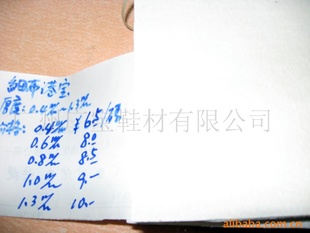 细布港宝
厚度: 0.4m/m~1.3m/m
价格: 0.4m/m ¥6.5/
0.6m/m 8.0
0.8m/m 8.5
1.0m/m 9.-
1.3m/m 10.-
宝鞋材有限公司
alibaba.com.cn